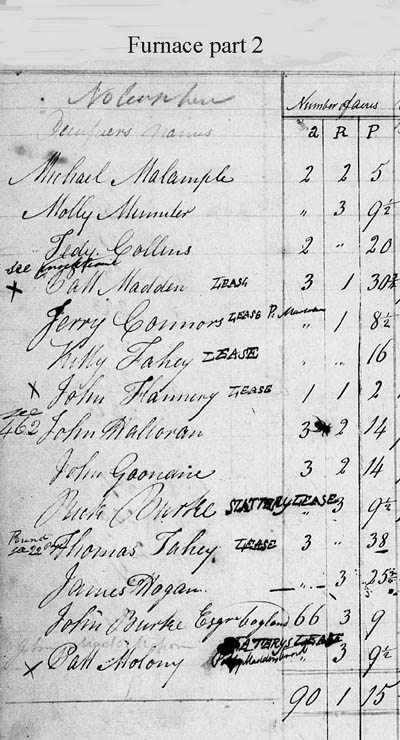 Furnace part 2
Number of acres
Occupiers names
a R P
Michael Malample 2 2 5
Molly Munster " 3 9½
Tedy Collins 2 " 20
see
x Patt Madden LEASE 3 1 30¾
Jerry Connors LEASE P. " 1 8½
Kitty Fahey LEASE " " 16
x John Flannery LEASE 1 1 2
see
462 John Halloran 3 2 14
John Goonane 3 2 14
Rick Burke SLATTERY LEASE 3 9½
Thomas Fahey LEASE 3 " 38
James Hogan " 3 25½
John Burke Esqre bogland 66 3 9
SLATTERYS LEASE
x Patt Molony " 3 9½
90 1 15